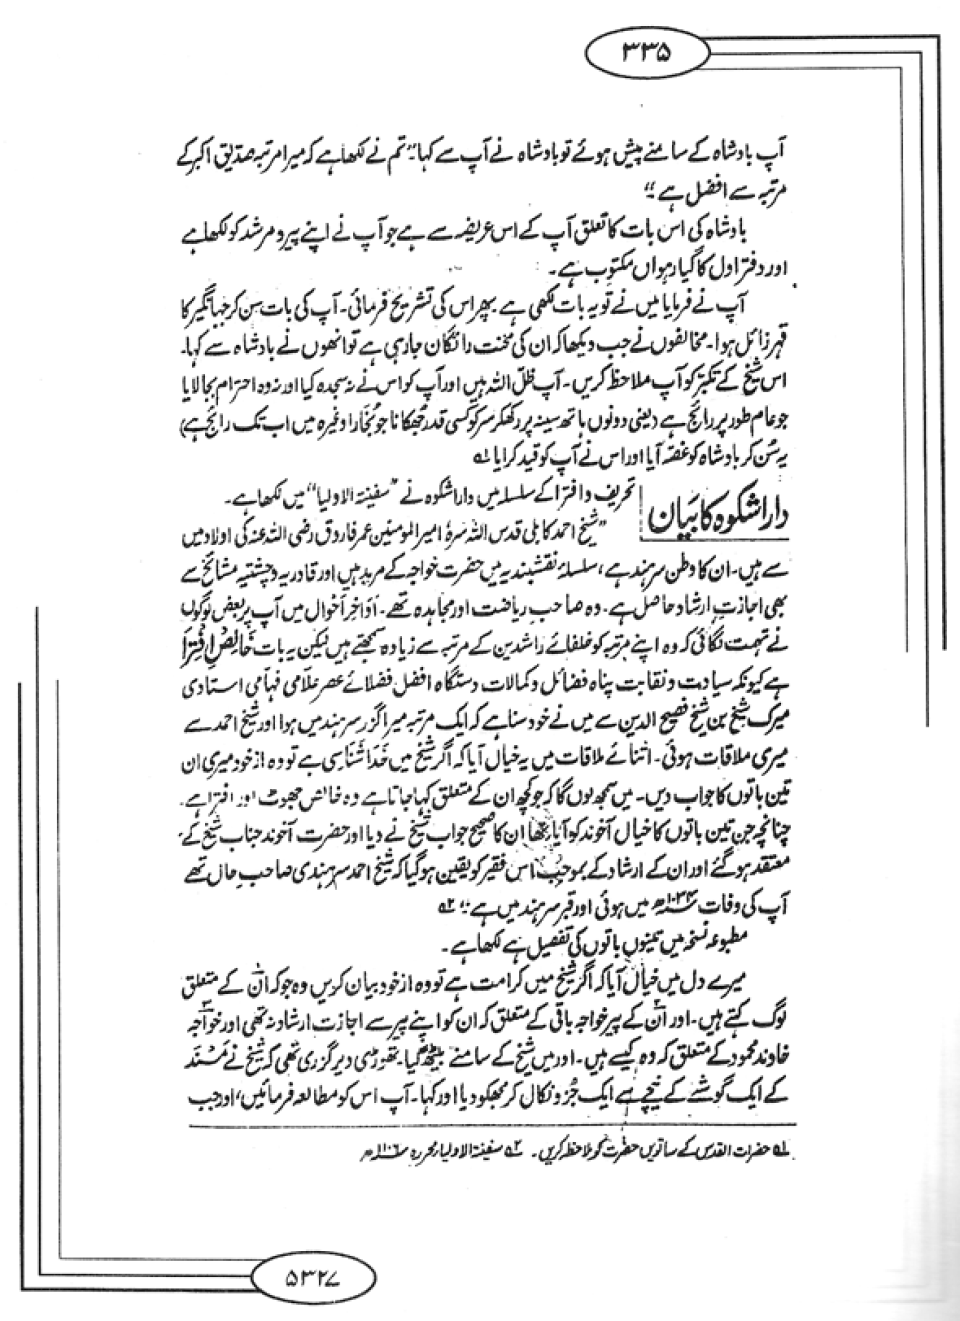 ۳۳۵
آپ بادشاہ کے سامنے پیش ہوئے تو بادشاہ نے آپ سے کہا "تم نے لکھا ہے کہ میرا مرتبہ صدیق اکبر کے
مرتبہ سے افضل ہے"
بادشاہ کی اس بات کا تعلق آپ کے اس عریضہ سے ہے جو آپ نے اپنے پیر و مرشد کو لکھا ہے
اور دفتر اول کا گیارہواں مکتوب ہے۔
آپ نے فرمایا میں نے تو یہ بات لکھی ہے پھر اس کی تشریح فرمائی۔ آپ کی بات سن کر جہانگیر کا
قہر زائل ہوا۔ مخالفوں نے جب دیکھا کہ ان کی محنت رائگان جا رہی ہے تو انھوں نے بادشاہ سے کہا۔
اس شیخ کے تکبر کو آپ ملاحظہ کریں۔ آپ ظلّ اللہ ہیں اور آپ کو اس نے نہ سجدہ کیا اور نہ وہ احترام بجا لایا
جو عام طور پر رائج ہے (یعنی دونوں ہاتھ سینہ پر رکھکر سر کو کسی قدر جُھکانا جو بُخارا وغیرہ میں اب تک رائج ہے)
یہ سُن کر بادشاہ کو غصّہ آیا اور اس نے آپ کو قید کرایا ۱ھ
داراشکوہ کا بیان
تحریف و افترا کے سلسلہ میں داراشکوہ نے "سفینۃ الاولیا" میں لکھا ہے۔
"شیخ احمد کابلی قدس اللہ سرہٗ امیر المومنین عمر فاروق رضی اللہ عنہ کی اولاد میں
سے ہیں۔ ان کا وطن سرہند ہے، سلسلۂ نقشبندیہ میں حضرت خواجہ کے مرید ہیں اور قادریہ و چشتیہ مشائخ سے
بھی اجازتِ ارشاد حاصل ہے۔ وہ صاحبِ ریاضت اور مجاہدہ تھے۔ اَواخرِ اَحوال میں آپ پر بعض لوگوں
نے تہمت لگائی کہ وہ اپنے مرتبہ کو خلفائے راشدین کے مرتبہ سے زیادہ سمجھتے ہیں لیکن یہ بات خَالِصُ اِفتِرَا
ہے کیونکہ سیادت و نقابت پناہ فضائل و کمالات دستگاہ افضل فضلائے عصر علامی فہامی استادی
میرک شیخ بن شیخ فصیح الدین سے میں نے خود سنا ہے کہ ایک مرتبہ میرا گزر سرہند میں ہوا اور شیخ احمد سے
میری ملاقات ہوئی۔ اثنائے ملاقات میں یہ خیال آیا کہ اگر شیخ میں خُدا شناسی ہے تو وہ از خود میری ان
تین باتوں کا جواب دیں۔ میں سمجھ لوں گا کہ جو کچھ ان کے متعلق کہا جاتا ہے وہ خالص جھوٹ اور افترا ہے۔
چنانچہ جن تین باتوں کا خیال آخوند کو آیا تھا ان کا صحیح جواب شیخ نے دیا اور حضرت آخوند جناب شیخ کے
معتقد ہو گئے اور ان کے ارشاد کے بموجب اس فقیر کو یقین ہو گیا کہ شیخ احمد سرہندی صاحبِ حال تھے
آپ کی وفات ۱۰۳۴ھ میں ہوئی اور قبر سرہند میں ہے" ۲ھ
مطبوعہ نسخہ میں تینوں باتوں کی تفصیل ہے لکھا ہے۔
میرے دل میں خیال آیا کہ اگر شیخ میں کرامت ہے تو وہ از خود بیان کریں وہ جو کہ ان کے متعلق
لوگ کہتے ہیں۔ اور ان کے پیر خواجہ باقی کے متعلق کہ ان کو اپنے پیر سے اجازت ارشاد نہ تھی اور خواجہ
خاوند محمود کے متعلق کہ وہ کیسے ہیں۔ اور میں شیخ کے سامنے بیٹھ گیا۔ تھوڑی دیر گزری تھی کہ شیخ نے مَسْنَد
کے ایک گوشے کے نیچے سے ایک جُزو نکال کر مجھکو دیا اور کہا۔ آپ اس کو مطالعہ فرمائیں، اور جب
۱ھ حضرات القدس کے ساتویں حضرت کو ملاحظہ کریں۔ ۲ھ سفینۃ الاولیا محررہ ۱۱۰۶ھ
۵۳۲۷